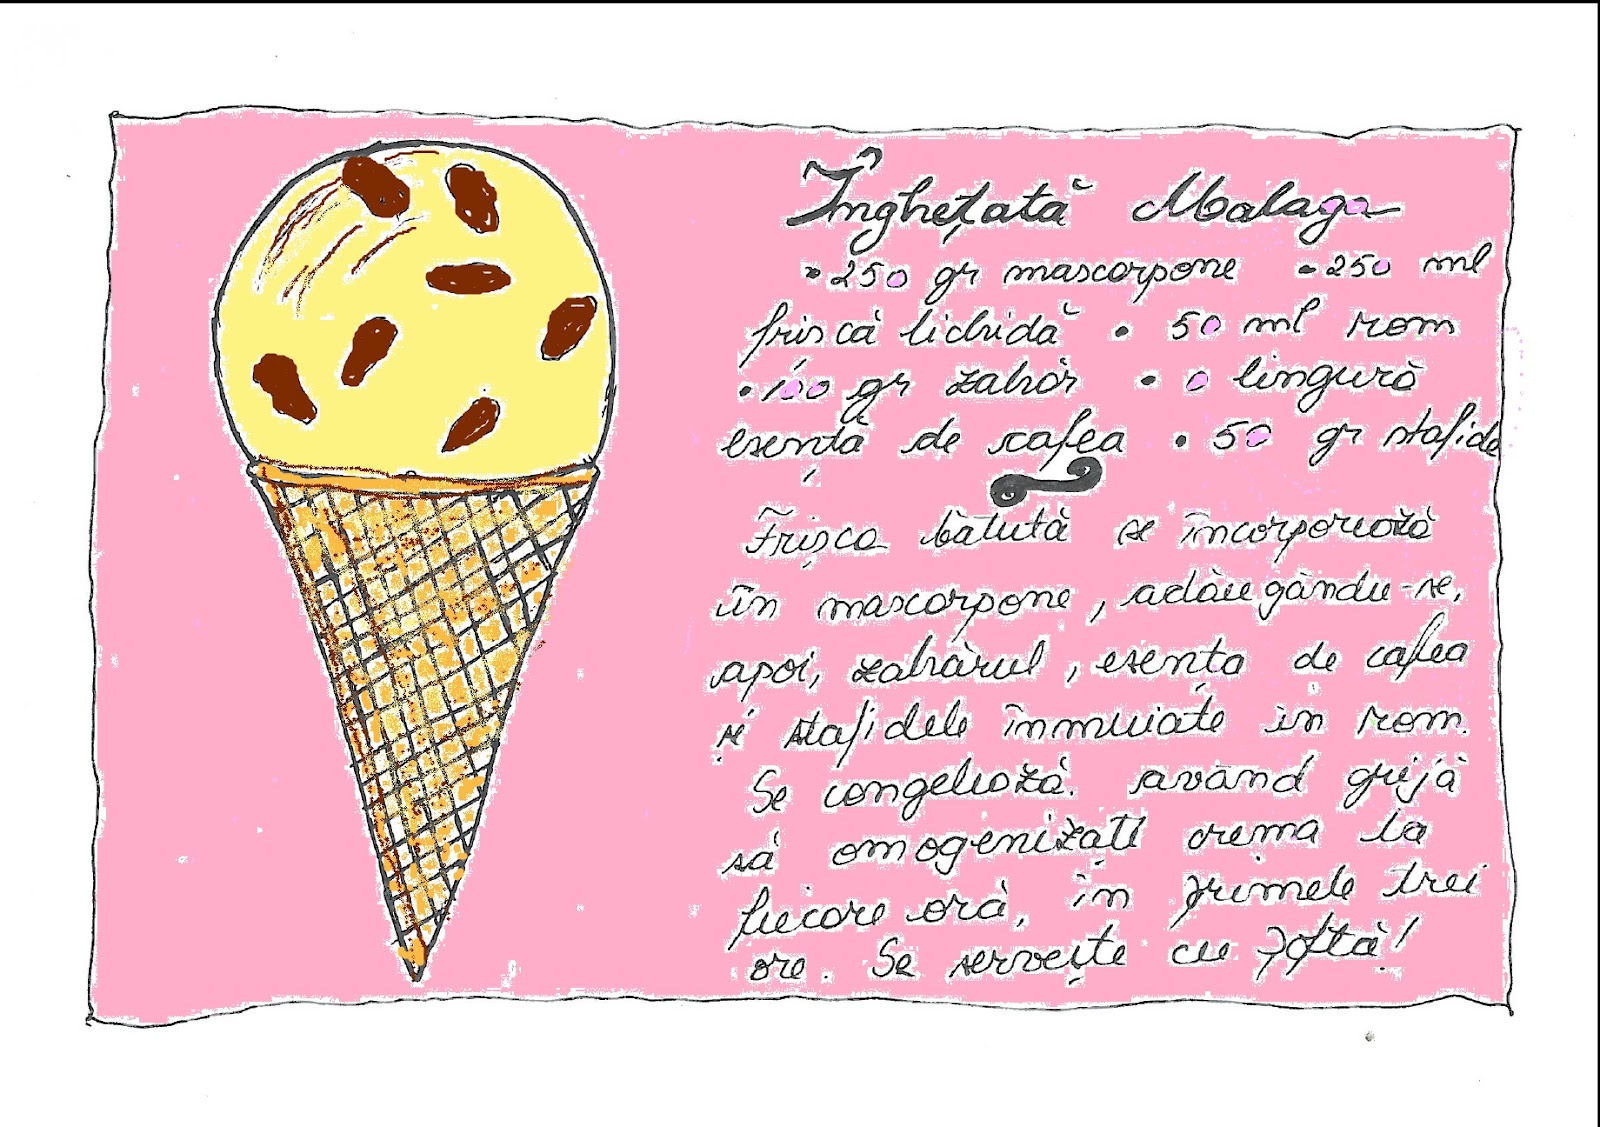 Înghețată Malaga
• 250 gr mascarpone • 250 ml
frișcă lichidă • 50 ml rom
• 100 gr zahăr • o lingură
esență de cafea • 50 gr stafide
Frișca bătută se încorporează
în mascarpone, adăugându-se,
apoi, zahărul, esența de cafea
și stafidele înmuiate în rom.
Se congelează. având grijă
să omogenizați crema la
fiecare oră, în primele trei
ore. Se servește cu poftă!